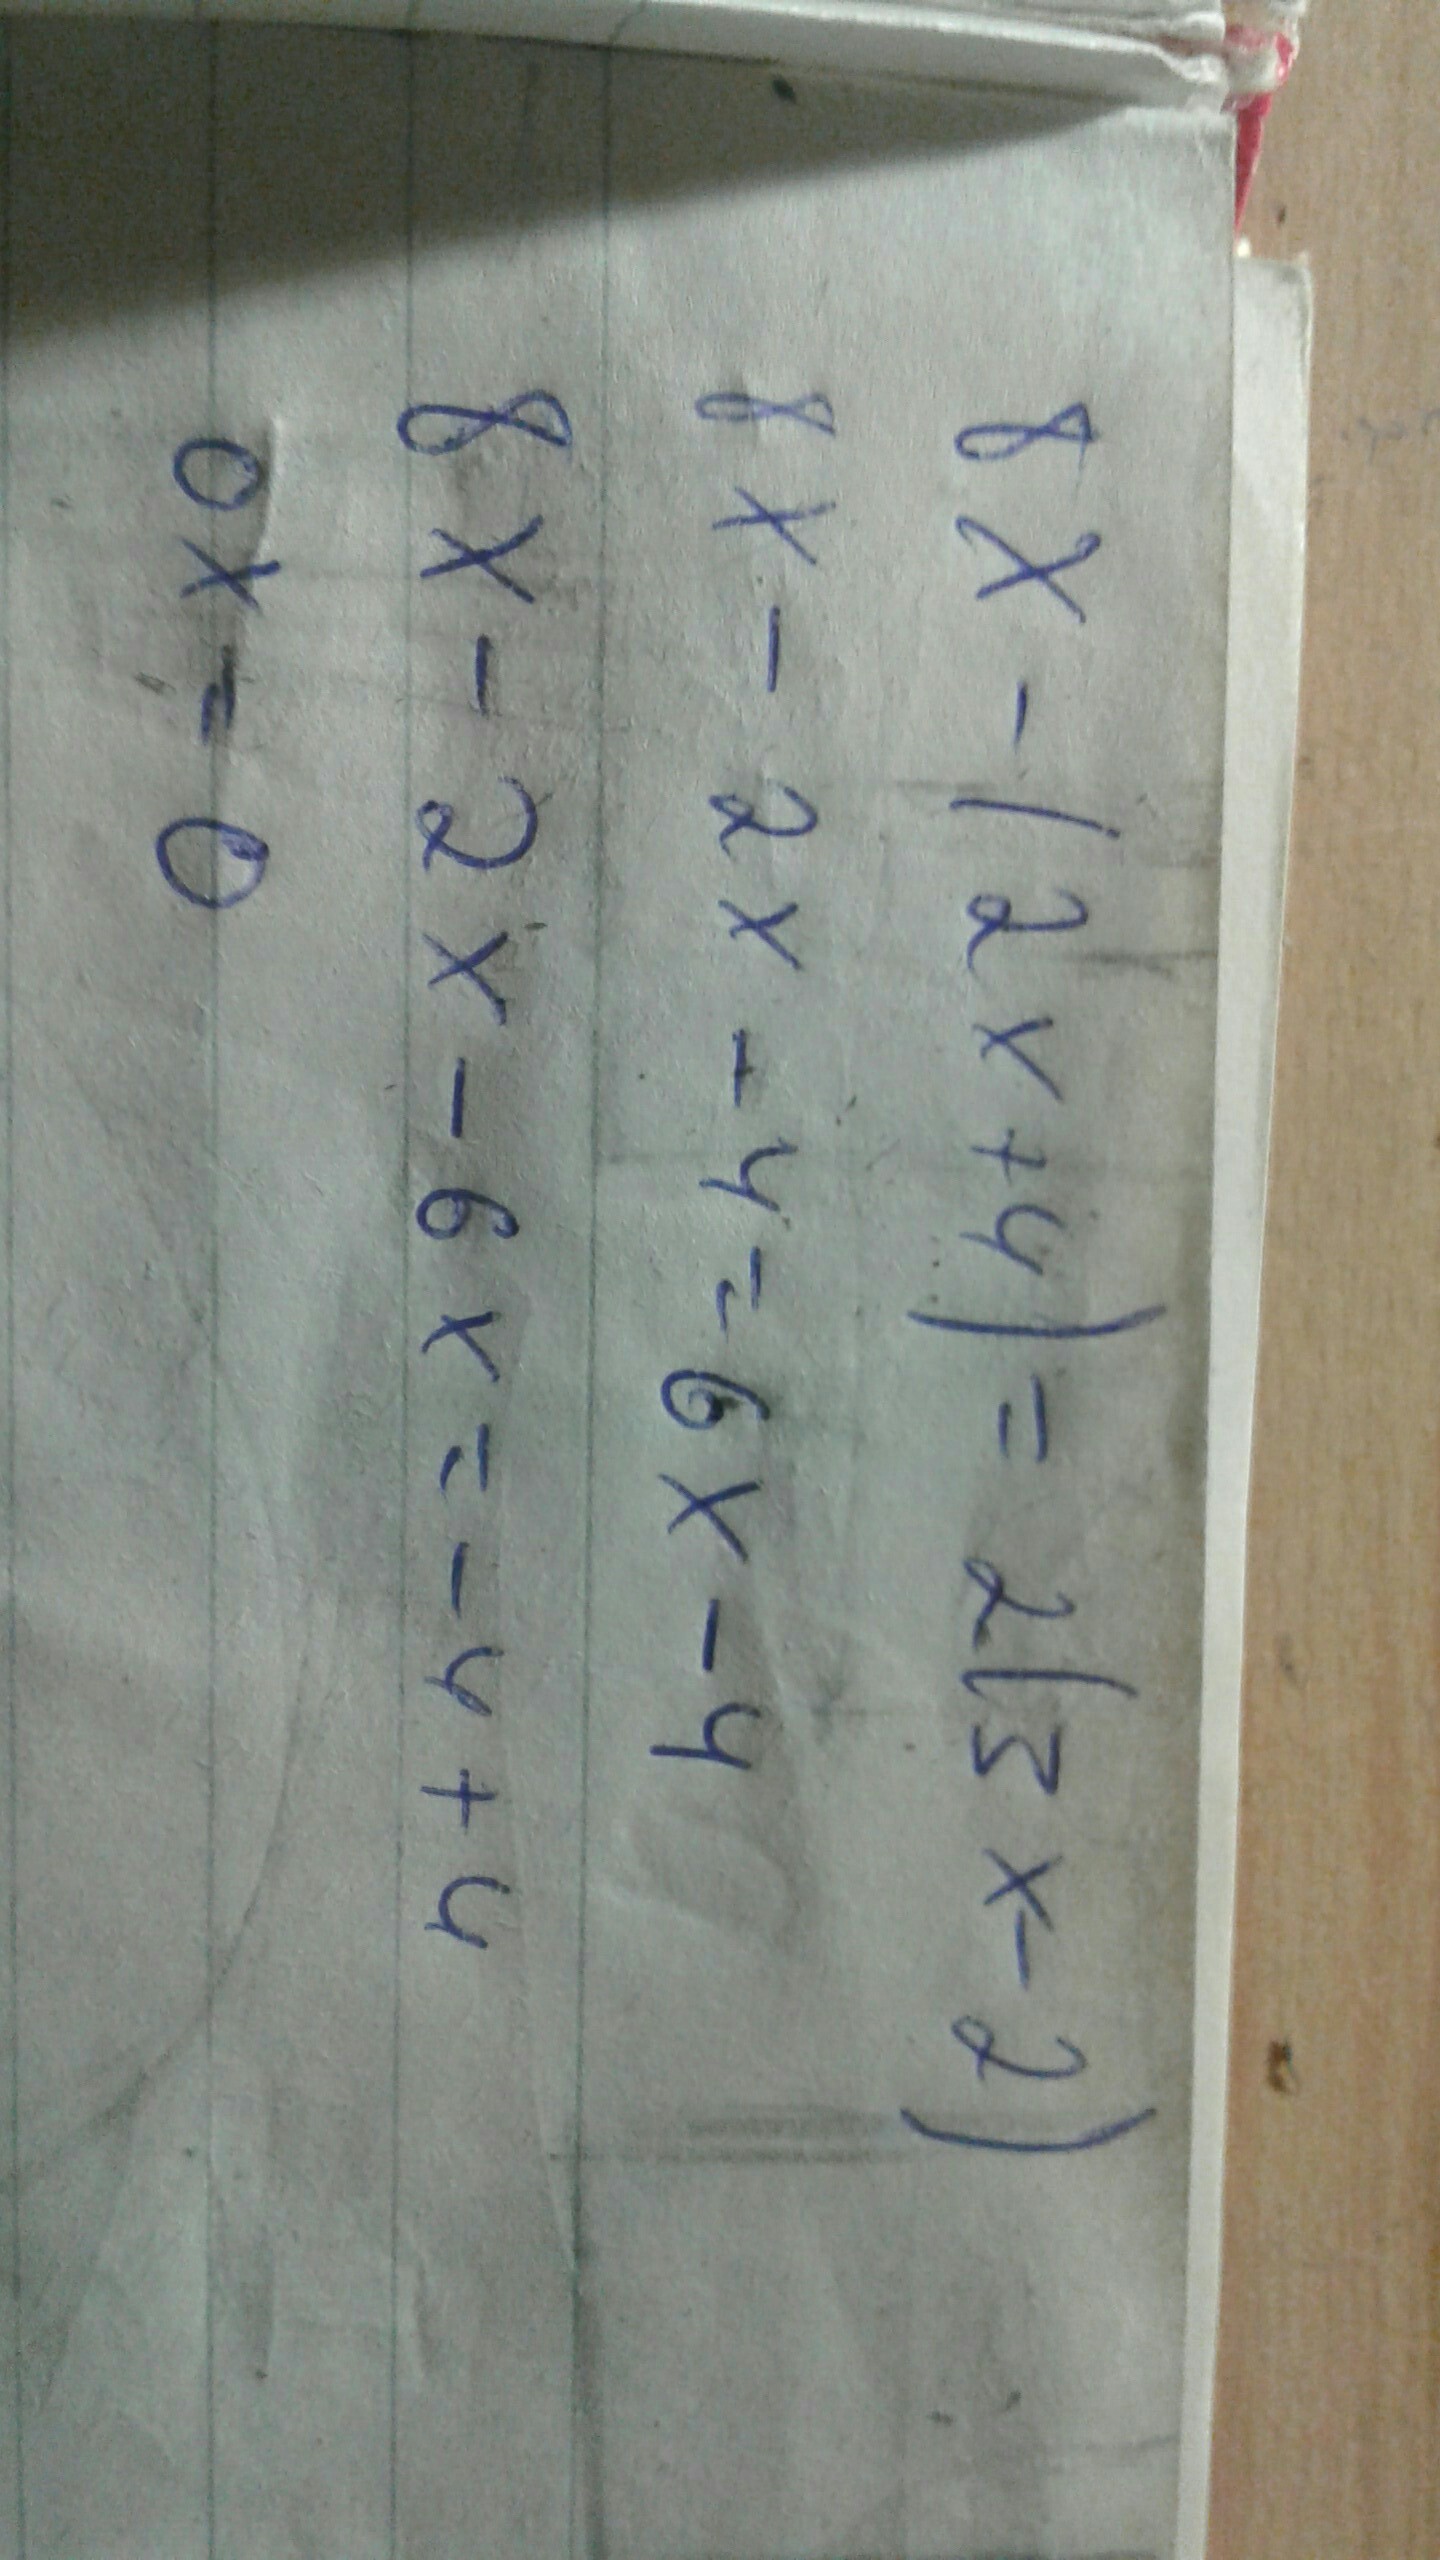 8x - (2x+4) = 2(3x-2)
8x - 2x - 4 = 6x - 4
8x - 2x - 6x = -4 + 4
0x = 0